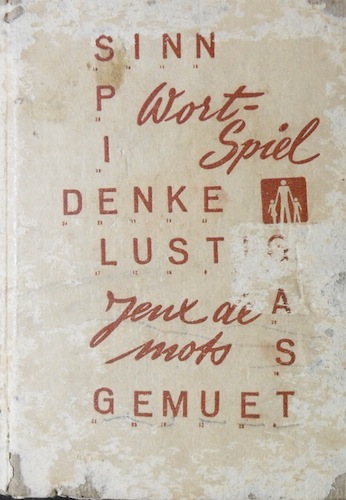 SINN
P Wort-
I Spiel
DENKE
LUSTIG
Jeux de A
mots S
GEMUET